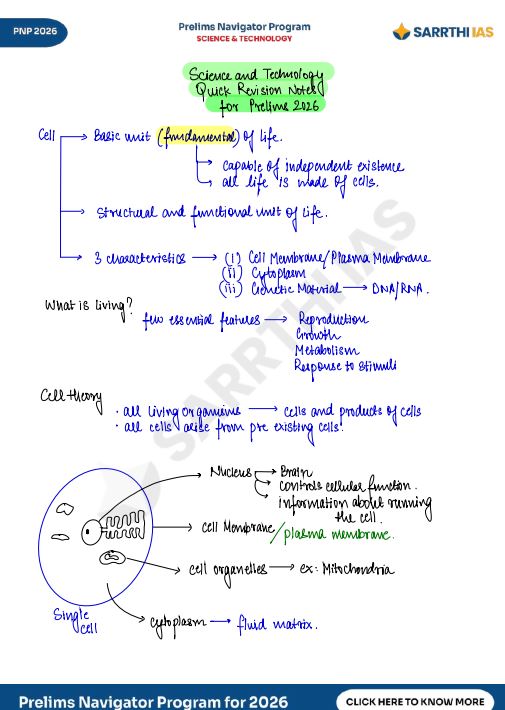 PNP 2026
Prelims Navigator Program
SCIENCE & TECHNOLOGY
SARRTHI IAS
Science and Technology
Quick Revision Notes
for Prelims 2026
Cell
Basic unit (fundamental) of life.
capable of independent existence
all life is made of cells.
Structural and functional unit of life.
3 characteristics → (i) Cell Membrane/Plasma Membrane
(ii) Cytoplasm
(iii) Genetic Material → DNA/RNA.
What is living?
few essential features → Reproduction
Growth
Metabolism
Response to stimuli
Cell theory
· all living organisms → cells and products of cells
· all cells arise from pre existing cells.
Nucleus → Brain
controls cellular function.
information about running
the cell.
cell Membrane/plasma membrane.
cell organelles → ex: Mitochondria
Single
cell
cytoplasm → fluid matrix.
SARRTHI IAS
Prelims Navigator Program for 2026
CLICK HERE TO KNOW MORE